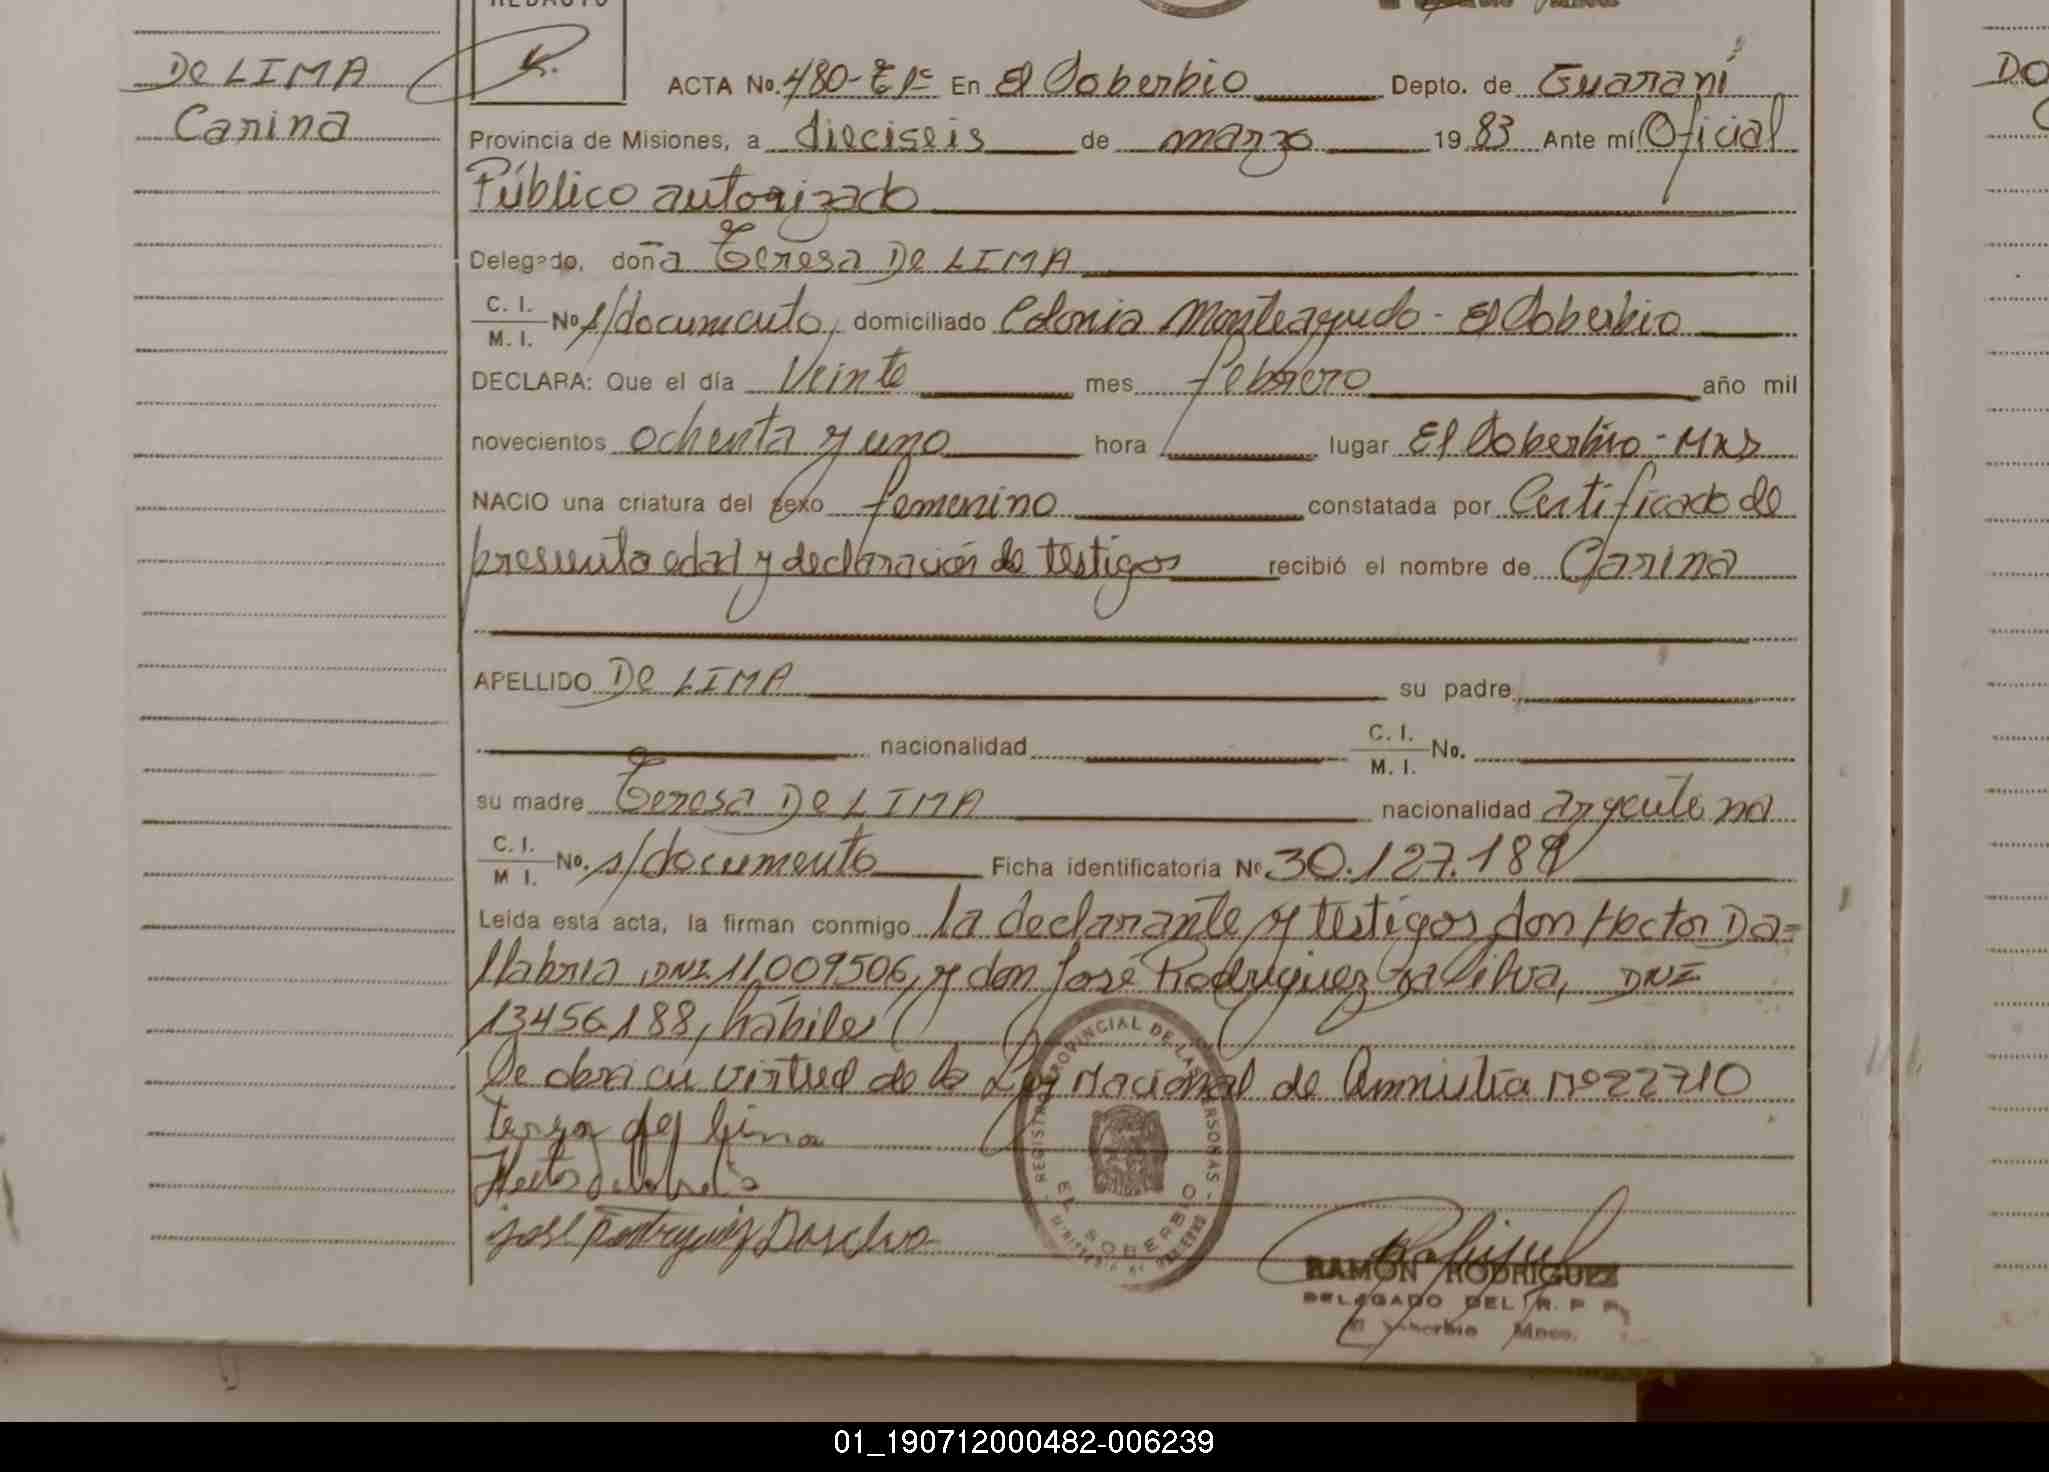 REDACTO
DE LIMA
Carina
ACTA No. 480-Tº1º En El Soberbio Depto. de Guaraní
Provincia de Misiones, a dieciseis de marzo 19 83 Ante mí Oficial
Público autorizado
Delegado, doña Teresa DE LIMA
C. I.
M. I. No s/documento, domiciliado Colonia Monteagudo - El Soberbio
DECLARA: Que el día Veinte mes febrero año mil
novecientos ochenta y uno hora lugar El Soberbio - Mns
NACIO una criatura del sexo femenino constatada por Certificado de
presunta edad y declaración de testigos recibió el nombre de Carina
APELLIDO DE LIMA su padre
nacionalidad C. I.
M. I. No.
su madre Teresa DE LIMA nacionalidad argentina
C. I.
M I. No. s/documento Ficha identificatoria Nº 30.127.189
Leida esta acta, la firman conmigo la declarante y testigos don Hector Da=
llabria, DNI 11.009506, y don José Rodriguez Da Silva, DNI
13456188, hábiles
Se obra en virtud de la Ley Nacional de Amnistía Nº 22710
tersa de lima
José Rodryguez Daselva
REGISTRO PROVINCIAL DE LAS PERSONAS
EL SOBERBIO
RAMON RODRIGUEZ
DELEGADO DEL R. P. P.
El Soberbio Mnes.
DO
01_190712000482-006239